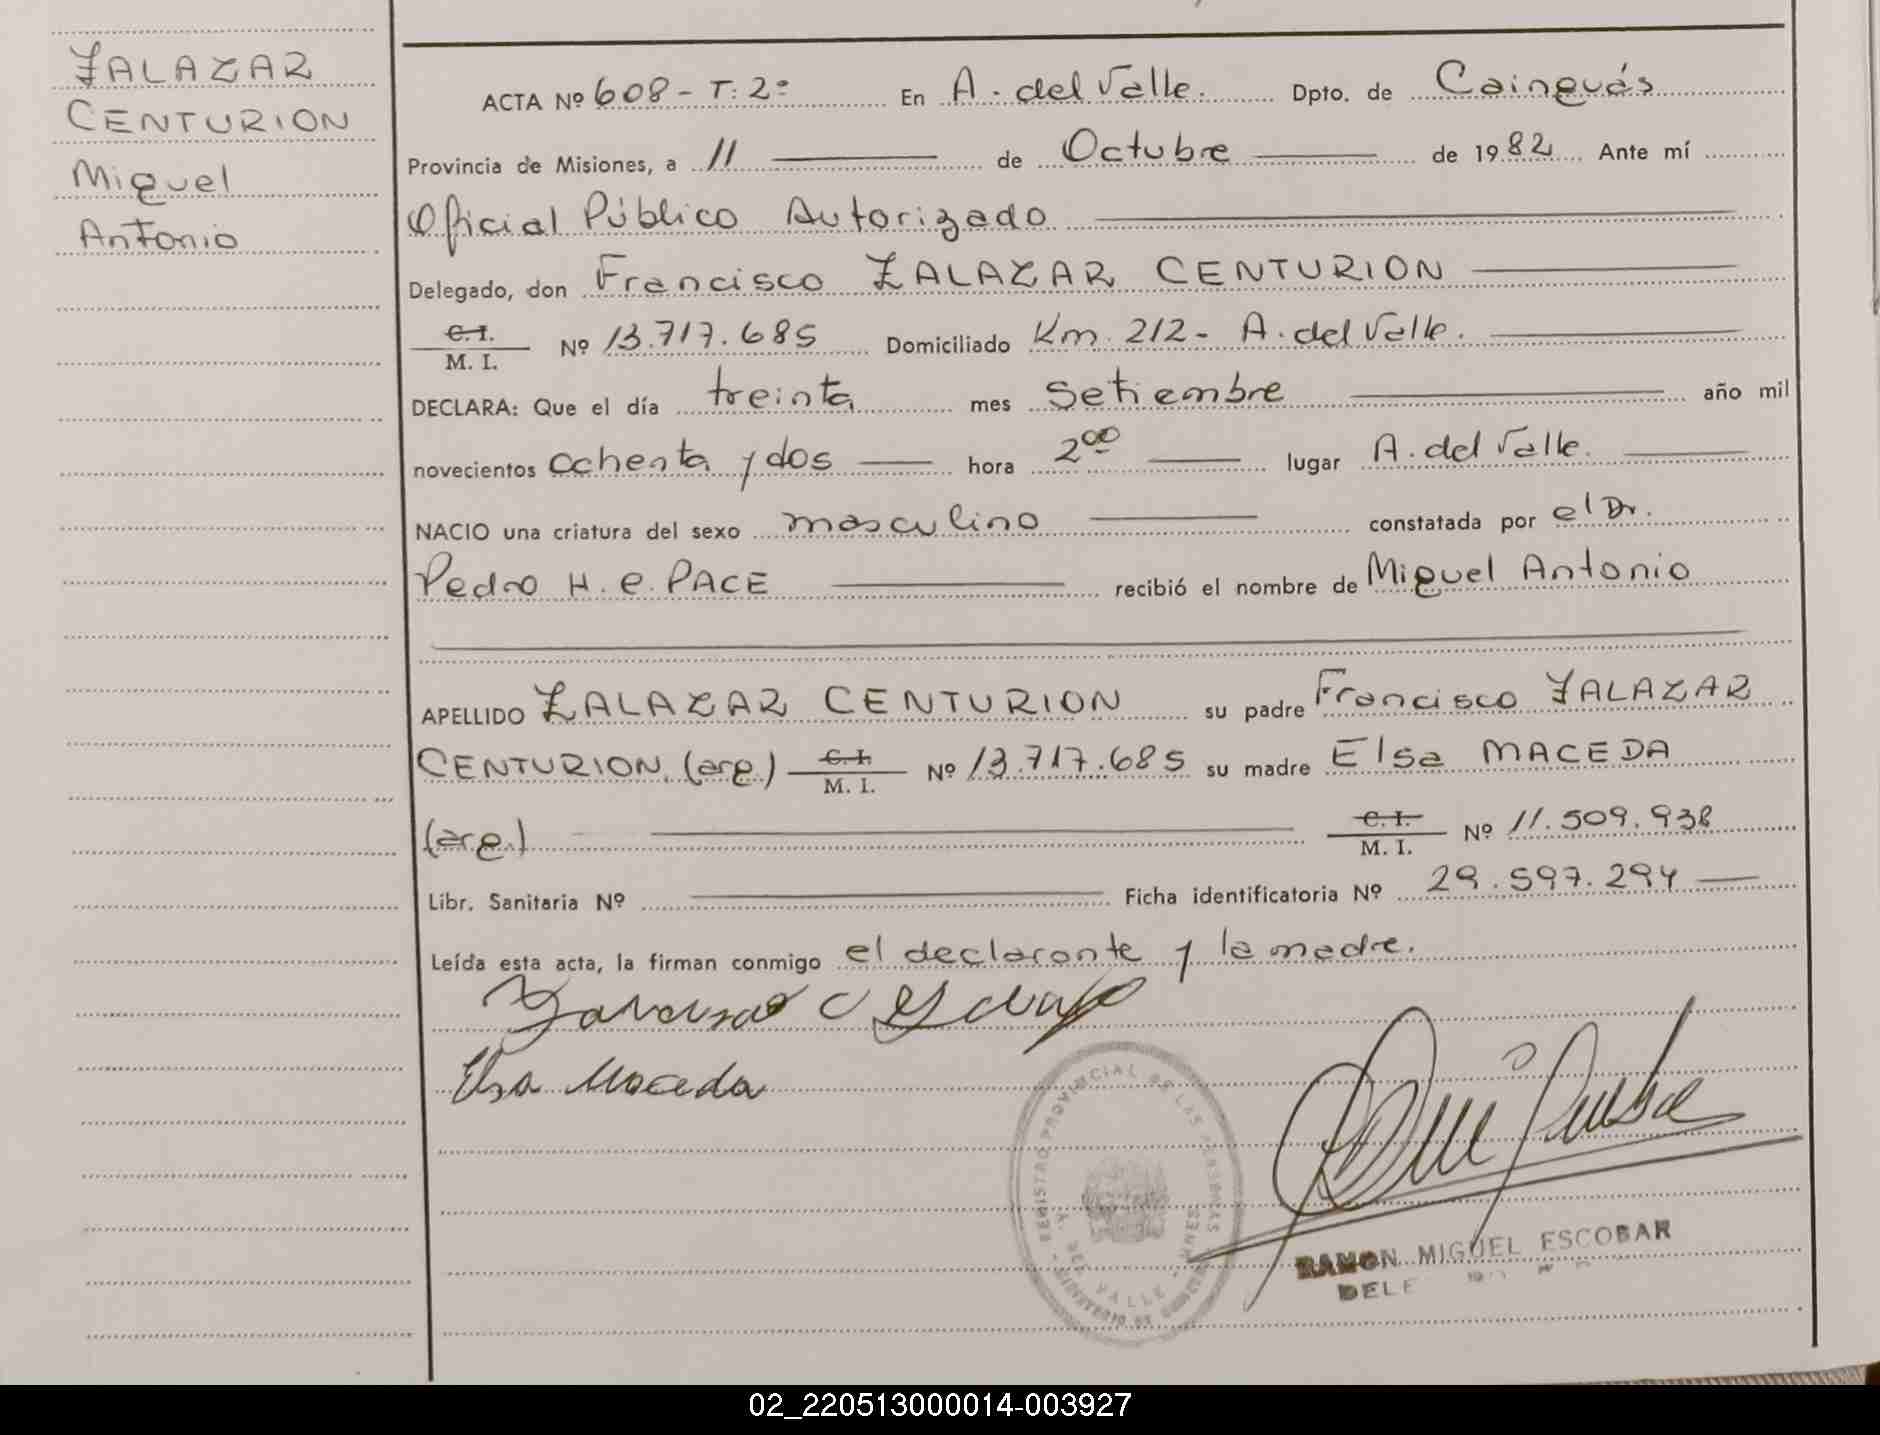 ZALAZAR
CENTURION
Miguel
Antonio
ACTA Nº 608 - T: 2º En A. del Valle. Dpto. de Cainguás
Provincia de Misiones, a 11 de Octubre de 1982 Ante mí
Oficial Público Autorizado
Delegado, don Francisco ZALAZAR CENTURION
C. I.
M. I. Nº 13.717.685 Domiciliado Km. 212 - A. del Valle.
DECLARA: Que el día treinta mes Setiembre año mil
novecientos ochenta y dos hora 2⁰⁰ lugar A. del Valle.
NACIO una criatura del sexo masculino constatada por el Dr.
Pedro H. e. PACE recibió el nombre de Miguel Antonio
APELLIDO ZALAZAR CENTURION su padre Francisco ZALAZAR
CENTURION. (arg.) C. I.
M. I. Nº 13.717.685 su madre Elsa MACEDA
(arg.) C. I.
M. I. Nº 11.509.938
Libr. Sanitaria Nº Ficha identificatoria Nº 29.597.294
Leída esta acta, la firman conmigo el declarante y la madre.
Elsa Maceda
REGISTRO PROVINCIAL DE LAS PERSONAS
A. DEL VALLE - MNES.
RAMON MIGUEL ESCOBAR
DELE
02_220513000014-003927